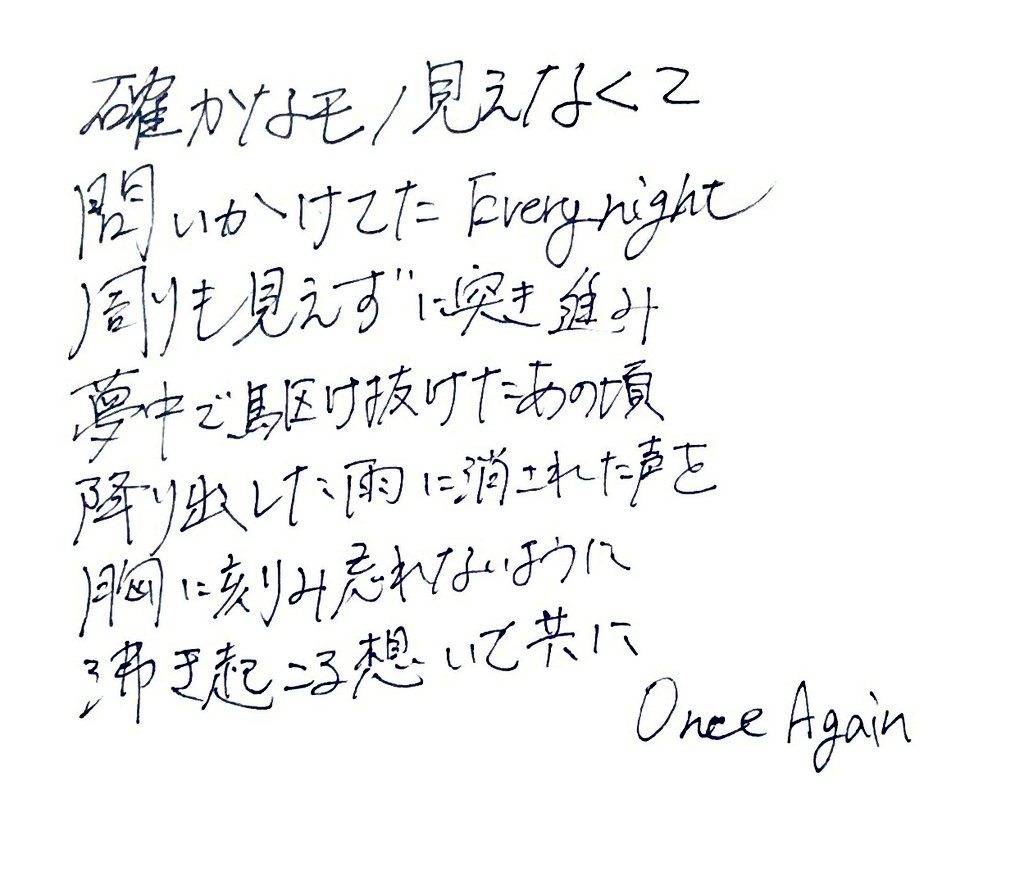 確かなモノ見えなくて
問いかけてた Every night
周りも見えずに突き進み
夢中で駆け抜けたあの頃
降り出した雨に消された声を
胸に刻み忘れないように
沸き起こる想いと共に
Once Again